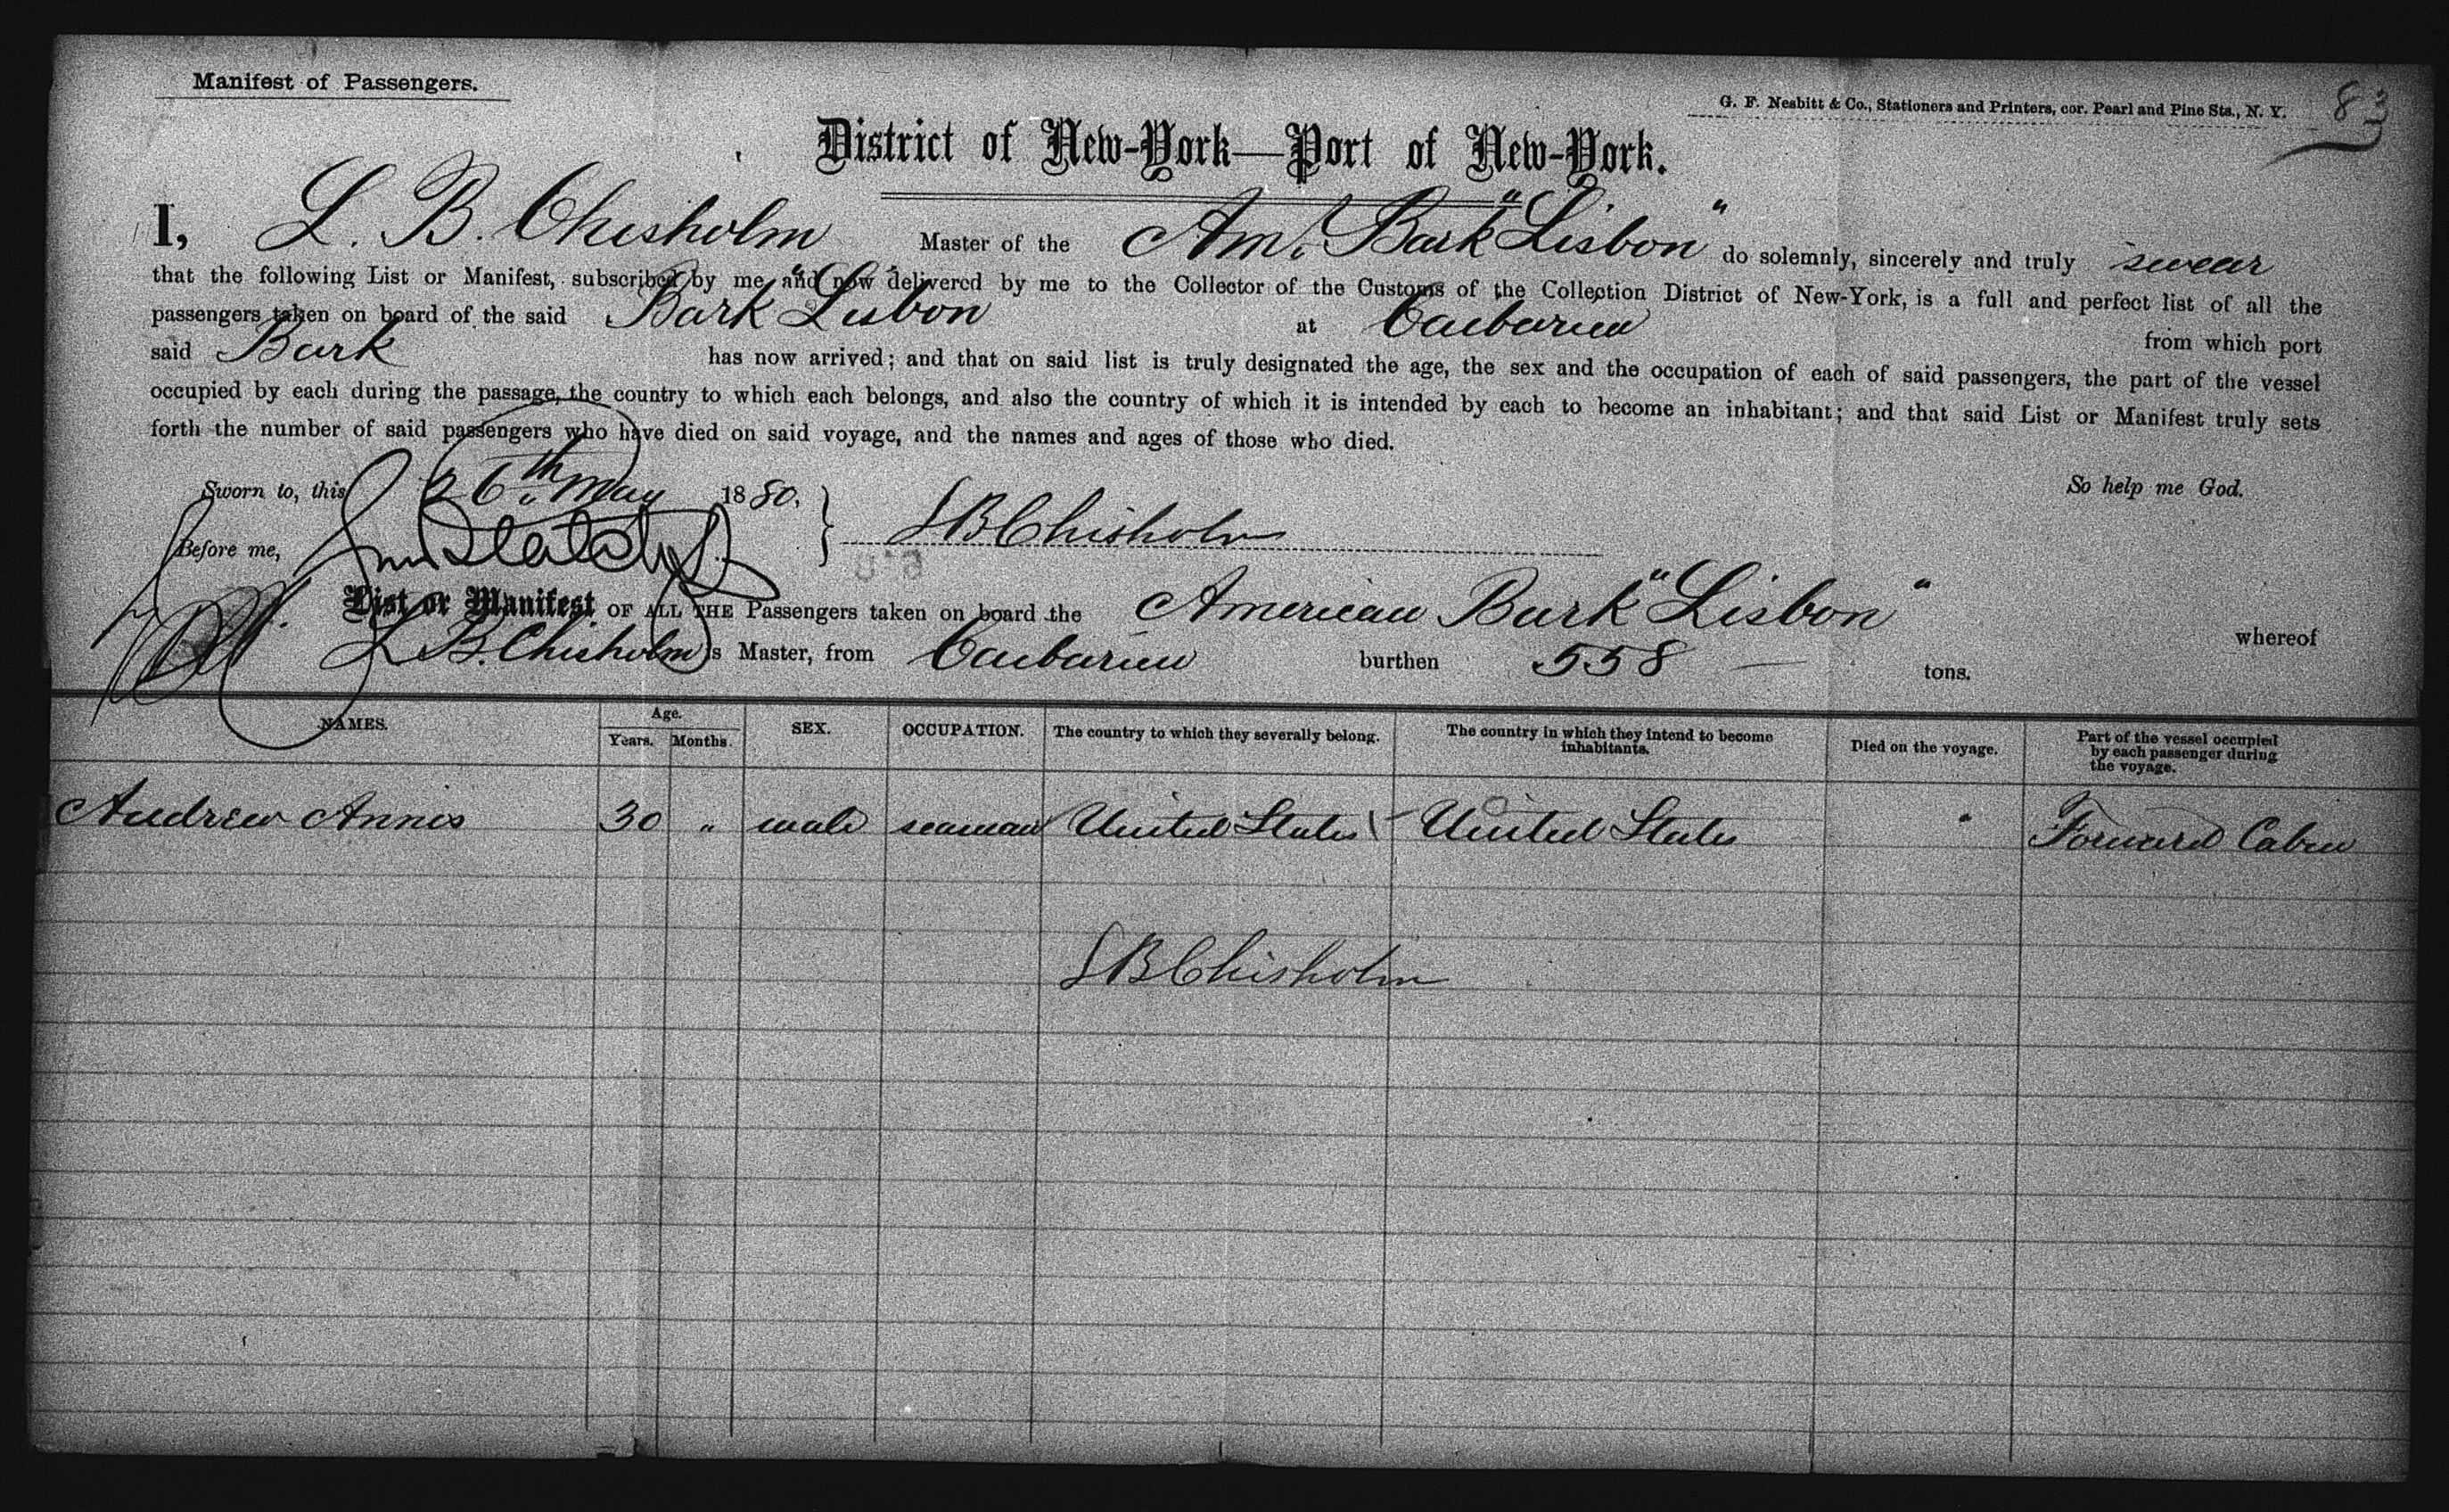 Manifest of Passengers.
G. F. Nesbitt & Co., Stationers and Printers, cor. Pearl and Pine Sts., N. Y.
83
District of New-York—Port of New-York.
I, L. B. Chisholm Master of the Am. Bark "Lisbon" do solemnly, sincerely and truly swear
that the following List or Manifest, subscribed by me and now delivered by me to the Collector of the Customs of the Collection District of New-York, is a full and perfect list of all the
passengers taken on board of the said Bark "Lisbon" at Caibarien from which port
said Bark has now arrived; and that on said list is truly designated the age, the sex and the occupation of each of said passengers, the part of the vessel
occupied by each during the passage, the country to which each belongs, and also the country of which it is intended by each to become an inhabitant; and that said List or Manifest truly sets
forth the number of said passengers who have died on said voyage, and the names and ages of those who died.
Sworn to, this 26th May 1880. So help me God.
Before me, LBChisholm
List or Manifest OF ALL THE Passengers taken on board the American Bark "Lisbon" whereof
L B. Chisholm is Master, from Caibarien burthen 558 tons.
NAMES. Age. Years. Months. SEX. OCCUPATION. The country to which they severally belong. The country in which they intend to become inhabitants. Died on the voyage. Part of the vessel occupied by each passenger during the voyage.
Andrew Annis 30 " male seaman United States United States " Forward Cabin
LBChisholm